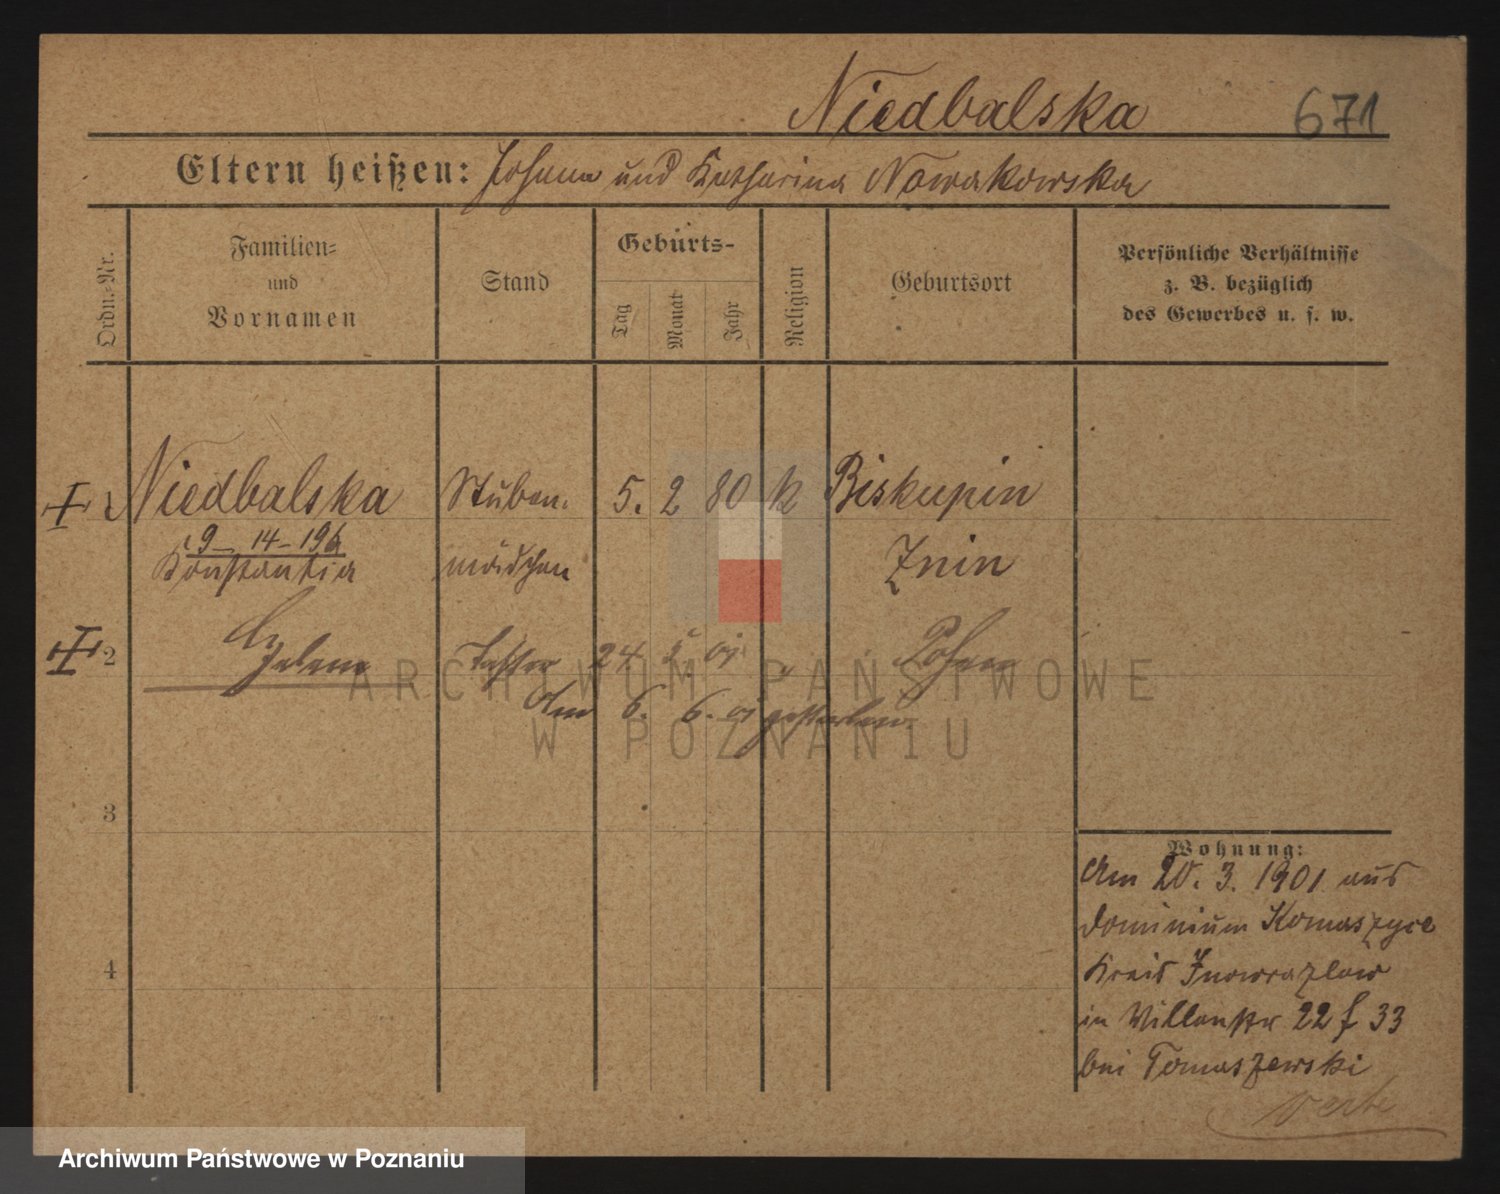 Niedbalska 671
Eltern heißen: Johann und Katharina Nowakowska
Ordn.-Nr.
Familien-
und
Vornamen
Stand
Geburts-
Tag
Monat
Jahr
Religion
Geburtsort
Persönliche Verhältnisse
z. B. bezüglich
des Gewerbes u. s. w.
1 Niedbalska Stuben- 5. 2 80 k Biskupin
9 14-196
Konstantia mädchen Znin
2 Helene Tochter 24 5 01 Posen
Am 6. 6. 01 gestorben
3
4
Wohnung:
Am 20. 3. 1901 aus
Dominium Komaszyce
Kreis Inowrazlaw
in Villenstr 22 f 33
bei Tomaszewski
verte
ARCHIWUM PAŃSTWOWE
W POZNANIU
Archiwum Państwowe w Poznaniu